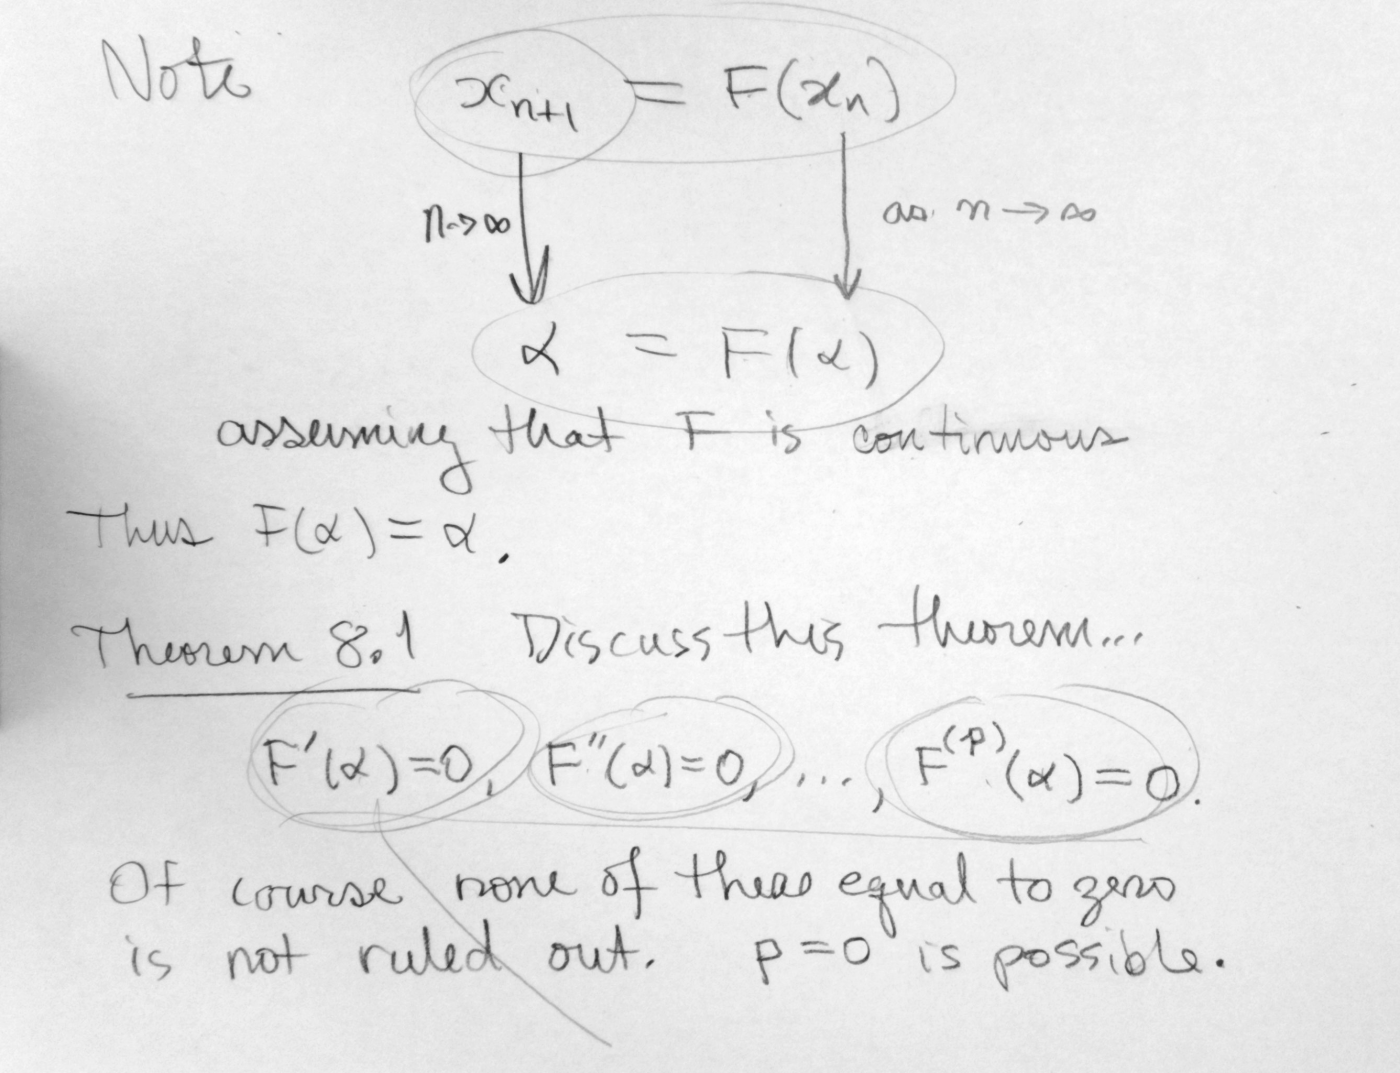 Note x_{n+1} = F(x_n)
n→∞ as n→∞
α = F(α)
assuming that F is continuous
Thus F(α) = α.
Theorem 8.1 Discuss this theorem...
F'(α)=0, F''(α)=0, ..., F^{(p)}(α)=0.
Of course none of these equal to zero
is not ruled out. p=0 is possible.